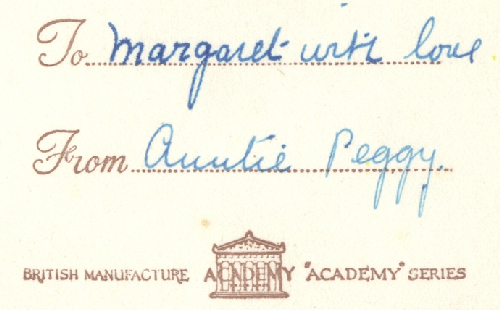 To Margaret with love
From Auntie Peggy.
BRITISH MANUFACTURE ACADEMY "ACADEMY" SERIES